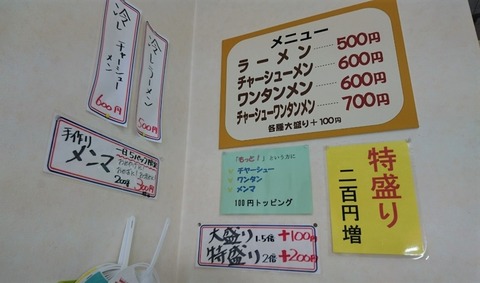 冷しチャーシューメン
600円
冷しラーメン
500円
メニュー
ラーメン……500円
チャーシューメン……600円
ワンタンメン……600円
チャーシューワンタンメン……700円
各麺大盛り+100円
手作り
メンマ
300円
「もっと!」という方に
チャーシュー
ワンタン
メンマ
100円トッピング
特盛り
二百円増
大盛り1.5倍+100円
特盛り2倍+200円